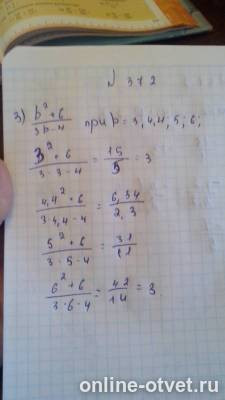 № 372
3) (b² + 6)/(3b - 4) при b = 3, 4,4; 5; 6;
(3² + 6)/(3 · 3 - 4) = 15/5 = 3
(4,4² + 6)/(3 · 4,4 - 4) = 6,34/2,3
(5² + 6)/(3 · 5 - 4) = 31/11
(6² + 6)/(3 · 6 - 4) = 42/14 = 3
online-otvet.ru